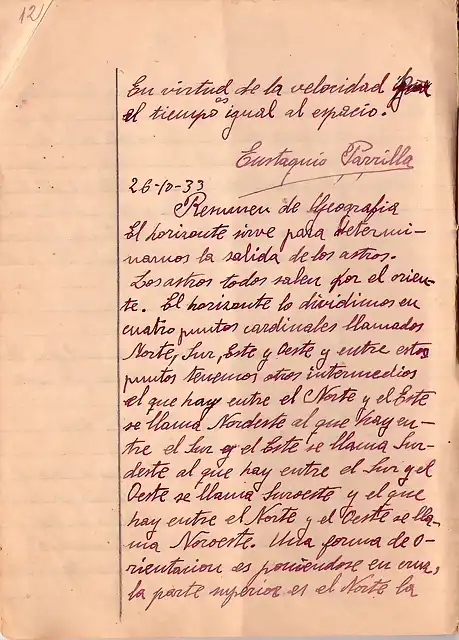 12
En virtud de la velocidad
el tiempo es igual al espacio.
Eustaquio Parrilla
26-10-33
Resumen de Geografia
El horizonte sirve para determi-
narnos la salida de los astros.
Los astros todos salen por el orien-
te. El horizonte lo dividimos en
cuatro puntos cardinales llamados
Norte, Sur, Este y Oeste y entre estos
puntos tenemos otros intermedios
el que hay entre el Norte y el Este
se llama Nordeste al que hay en-
tre el Sur y el Este se llama Sur-
deste al que hay entre el Sur y el
Oeste se llama Suroeste y el que
hay entre el Norte y el Oeste se lla-
ma Noroeste. Una forma de o-
rientacion es poniendose en cruz,
la parte superior es el Norte la